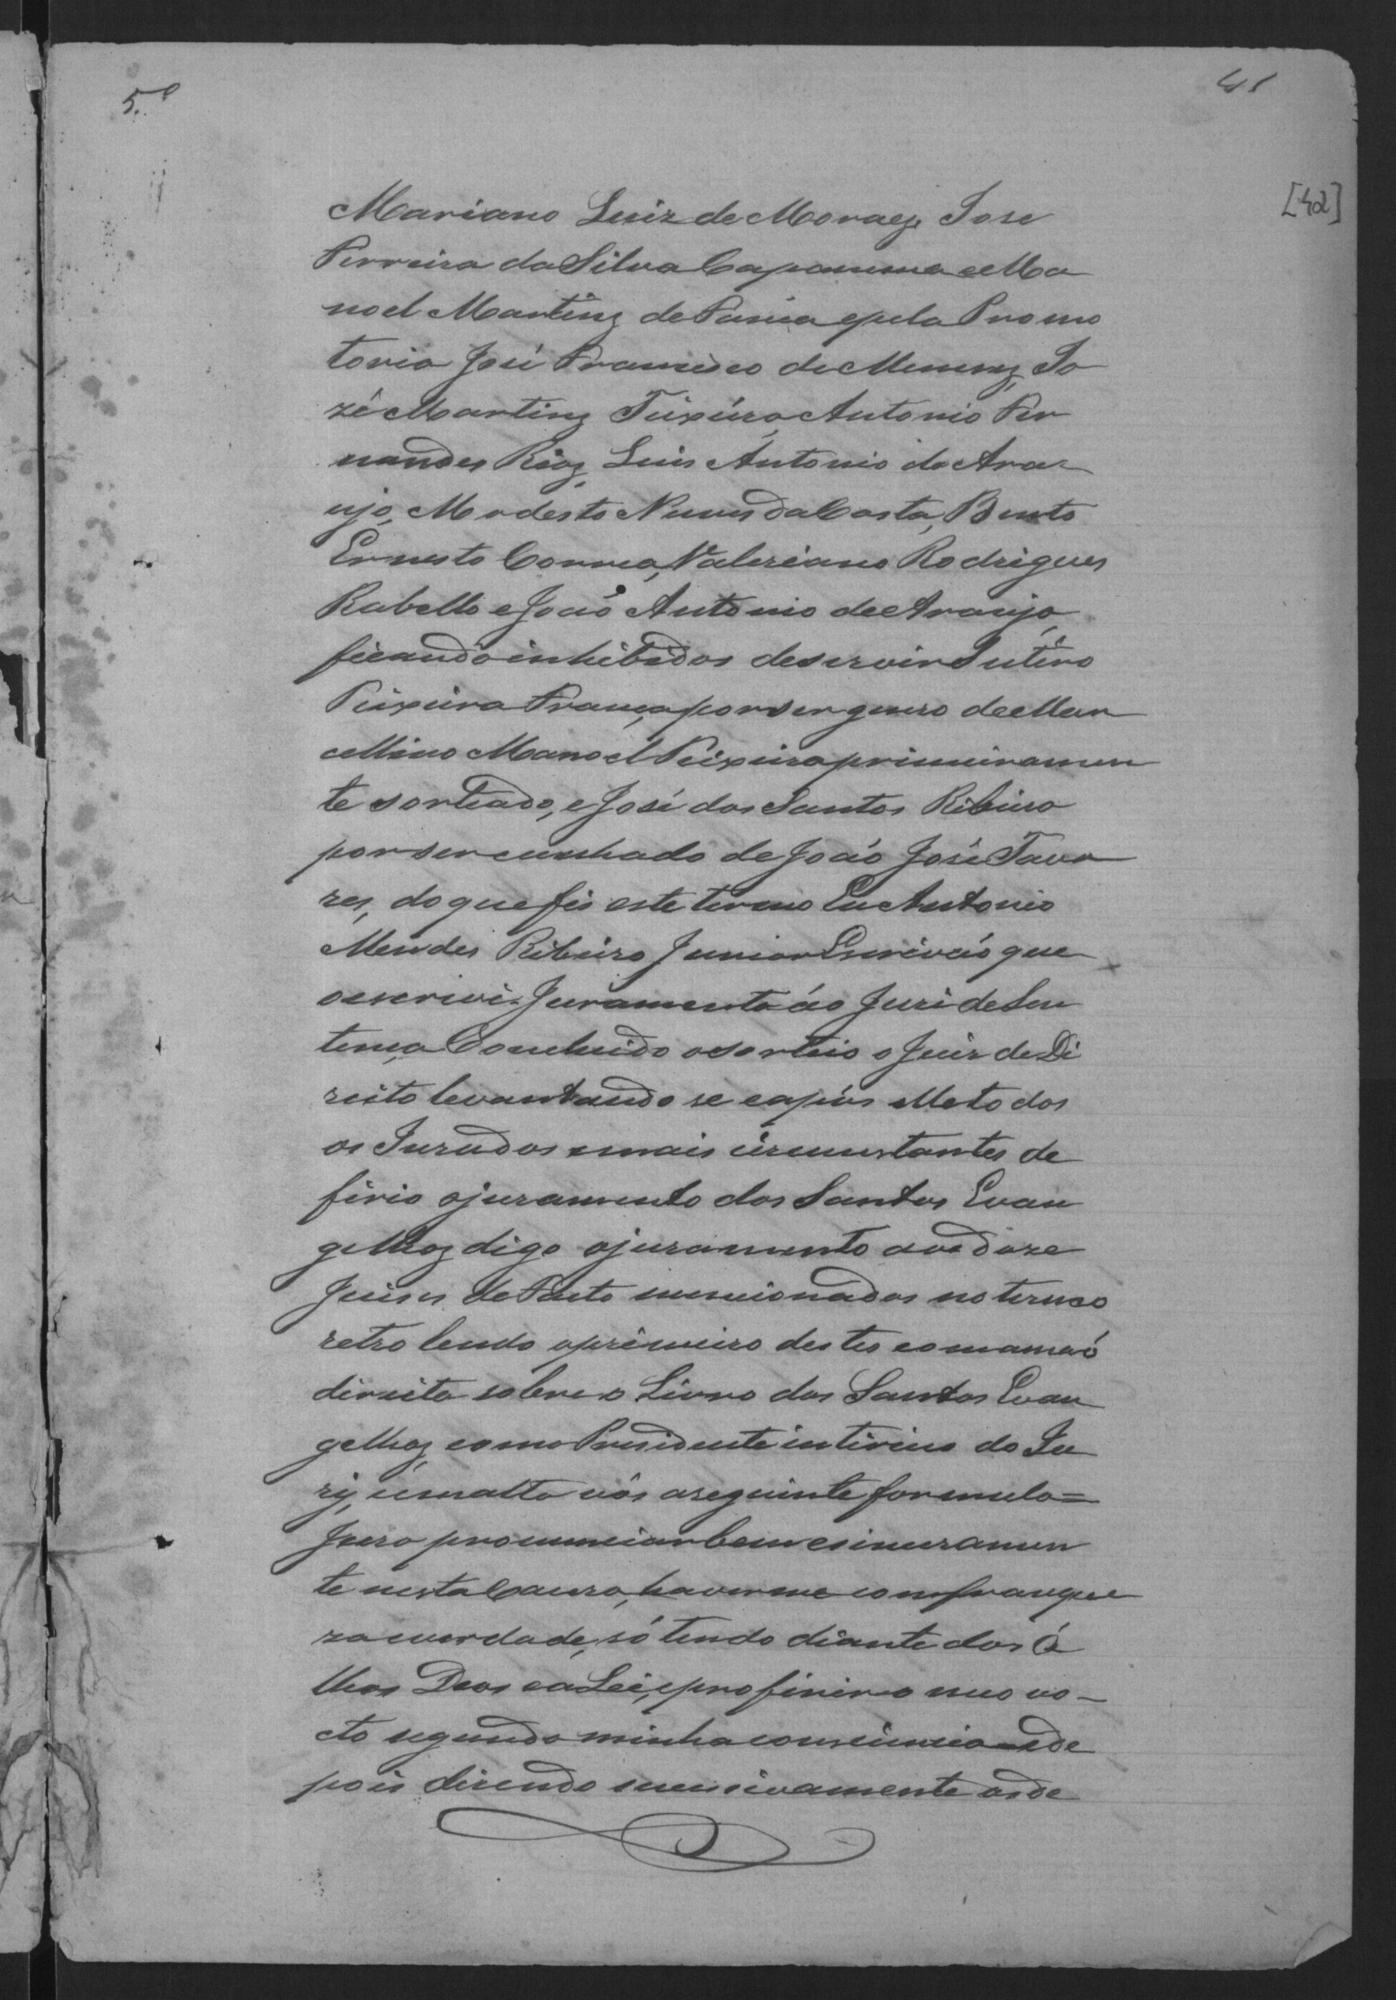 5.º
41
[42]
Mariano Luiz de Moraes, Jose
Ferreira da Silva Capanema e Ma
noel Martins de Faria e pela Promo
toria José Francisco de Menezes, Jo
zé Martins Teixeira, Antonio Fer
nandes Rios, Luis Antonio de Ara
ujo, Modesto Nunes da Costa, Bento
Ernesto Correa, Valeriano Rodrigues
Rabello e João Antonio de Araujo,
ficando inhibidos de servir
Teixeira França, por ser genro de Mar
cellino Manoel Teixeira primeiramen
te sorteado, e José dos Santos Ribeiro
por ser cunhado de João José Tava
res, do que fis este termo Eu Antonio
Mendes Ribeiro Junior Escrivão que
o escrivi. Juramento ao Juri de Sen
tença Concluido o sorteio o Juiz de Di
reito levantando se e apos elle todos
os Jurados e mais circunstantes de
ferio o juramento dos Santos Evan
gelhos digo o juramento aos doze
Juises de Facto mencionados no termo
retro lendo o primeiro destes com a mão
direita sobre o Livro dos Santos Evan
gelhos, como Presidente interino do Ju
ry, em alta vós a seguinte formula=
Juro pronunciar bem e sinceramen
te nesta Causa, haverme com franque
za e verdade, só tendo diante dos ó
lhos Deos e a Lei, e proferir o meo vo-
cto segundo minha consciencia e de
pois disendo sucessivamente os de